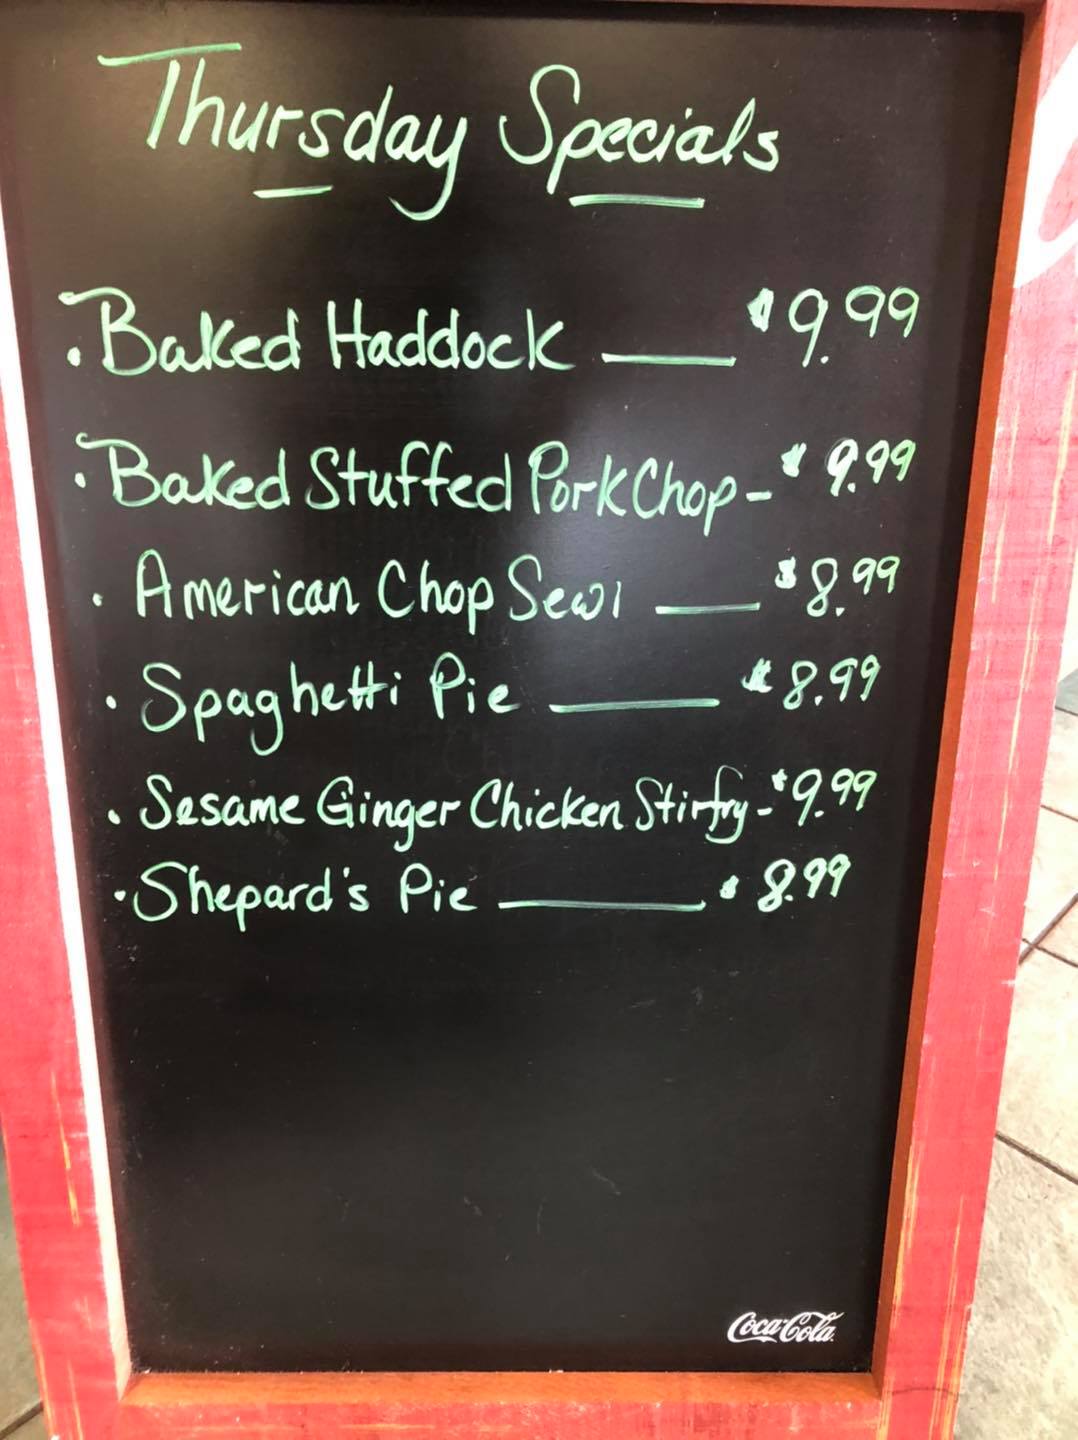 Thursday Specials
. Baked Haddock ___ $9.99
. Baked Stuffed Pork Chop - $9.99
. American Chop Sewi ___ $8.99
. Spaghetti Pie ___ $8.99
. Sesame Ginger Chicken Stirfry - $9.99
. Shepard's Pie ___ $8.99
Coca-Cola